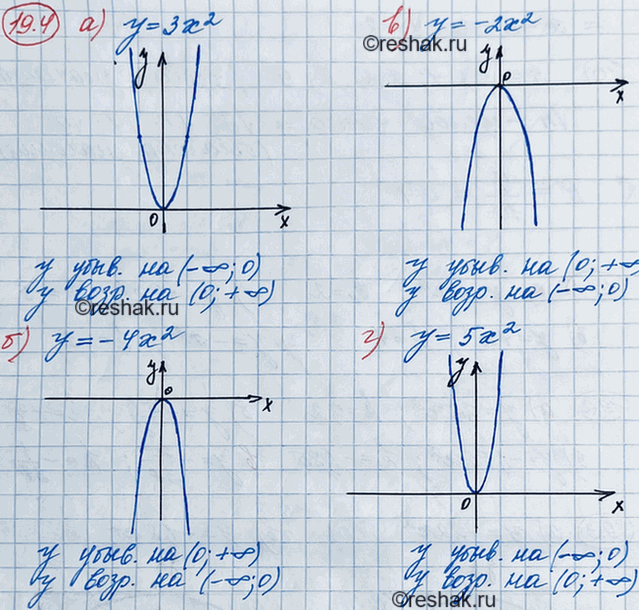 19.4 а) y = 3x²
y
0
x
y убыв. на (-∞; 0)
y возр. на (0; +∞)
©reshak.ru
б) y = -4x²
y
0
x
y убыв. на (0; +∞)
y возр. на (-∞; 0)
в) y = -2x²
©reshak.ru
y
0
x
y убыв. на (0; +∞
y возр. на (-∞; 0)
г) y = 5x²
y
0
x
y убыв. на (-∞; 0)
y возр. на (0; +∞)
©reshak.ru